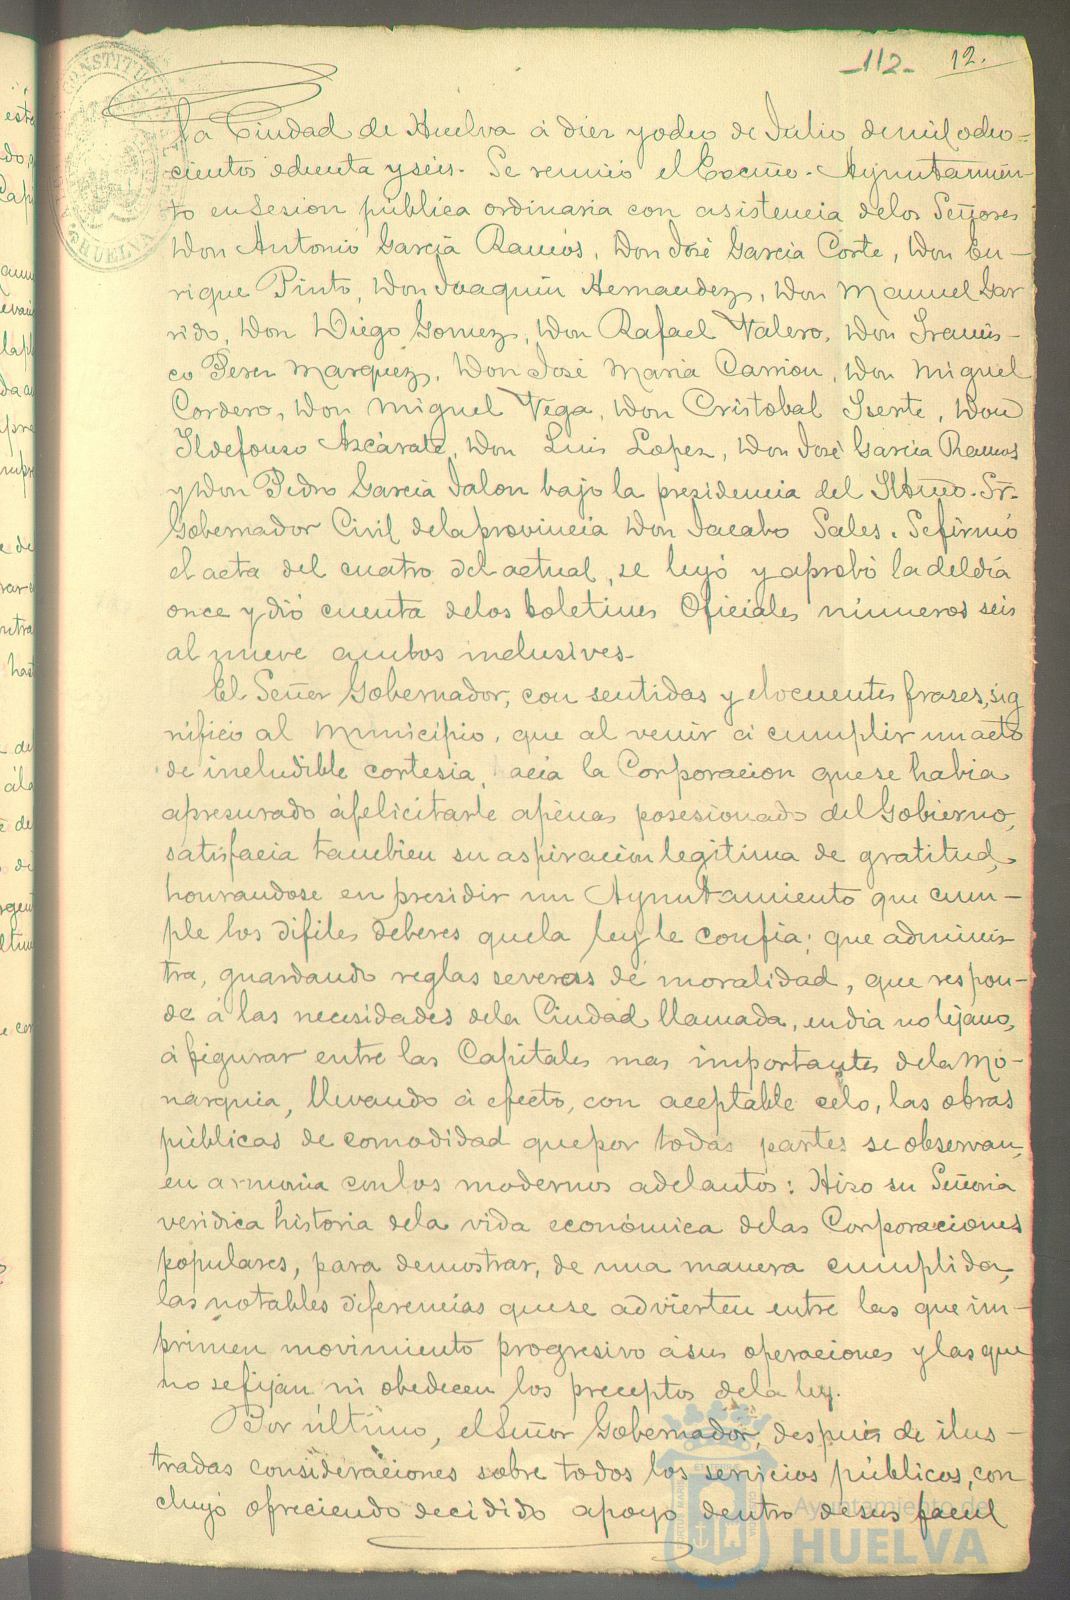 -112- 12.
CONSTITUC
HUELVA
La Ciudad de Huelva á diez y ocho de Julio de mil ocho-
cientos ochenta y seis. Se reunió el Excmo. Ayuntamien-
to en Sesion pública ordinaria con asistencia de los Señores
Don Antonio Garcia Ramos, Don José Garcia Corte, Don En-
rique Pinto, Don Joaquin Hernandez, Don Manuel Gar
rido, Don Diego Gomez, Don Rafael Valero, Don Francis-
co Perez Marquez, Don José Maria Carrion, Don Miguel
Cordero, Don Miguel Vega, Don Cristobal Iserte, Don
Ildefonso Azcárate, Don Luis Lopez, Don José Garcia Ramos
y Don Pedro Garcia Jalon bajo la presidencia del Iltmo. Sr.
Gobernador Civil de la provincia Don Jacobo Sales. Se firmó
el acta del cuatro del actual, se leyó y aprobó la del dia
once y dió cuenta de los boletines Oficiales números seis
al nueve ambos inclusives-
El Señor Gobernador, con sentidas y elocuentes frases, sig
nificó al Municipio, que al venir á cumplir un acto
de ineludible cortesia, acia la Corporacion que se habia
apresurado á felicitarle apénas posesionado del Gobierno,
satisfacia tambien su aspiracion legitima de gratitud,
honrandose en presidir un Ayuntamiento que cum-
ple los dificiles deberes que la ley le confia; que adminis
tra, guardando reglas severas de moralidad, que respon-
de á las necesidades de la Ciudad llamada, en dia no lejano,
á figurar entre las Capitales mas importantes de la Mo-
narquia, llevando á efecto, con aceptable celo, las obras
públicas de comodidad que por todas partes se observan,
en armonia con los modernos adelantos: Hizo su Señoria
veridica historia de la vida económica de las Corporaciones
populares, para demostrar, de una manera cumplida,
las notables diferencias que se advierten entre las que im-
primen movimiento progresivo á sus operaciones y las que
no se fijan ni obedecen los preceptos de la ley.
Por último, el Señor Gobernador, despues de ilus-
tradas consideraciones sobre todos los servicios públicos, con
cluyó ofreciendo decidido apoyo dentro de sus facul
Ayuntamiento de
HUELVA